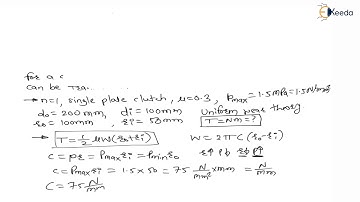 Ekeeda
for a c
can be Tra..
→ n=1, single plate clutch, μ=0.3, Pmax=1.5MPa=1.5N/mm²
do=200mm, di=100mm Uniform wear theory
ro=100mm, ri=50mm T=Nm=?
→ T=½μW(ro+ri) W=2πC(ro-ri)
C=pr=Pmax ri=Pmin ro r↑ p↓ r↓ p↑
C=Pmax ri = 1.5×50=75 N/mm² × mm = N/mm
C=75 N/mm